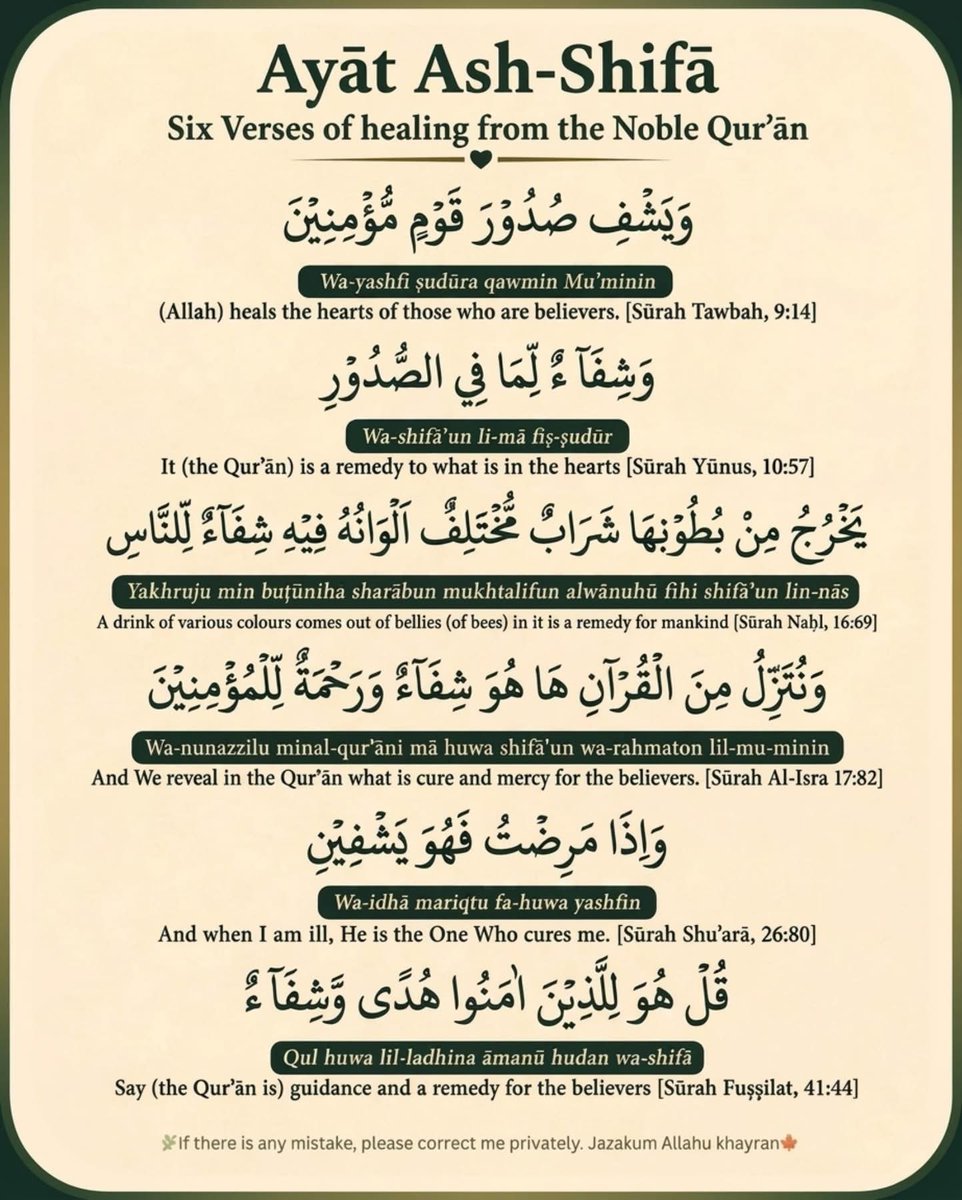 Ayāt Ash-Shifā
Six Verses of healing from the Noble Qur’ān
وَيَشْفِ صُدُوْرَ قَوْمٍ مُّؤْمِنِيْنَ
Wa-yashfi ṣudūra qawmin Mu’minin
(Allah) heals the hearts of those who are believers. [Sūrah Tawbah, 9:14]
وَشِفَآءٌ لِّمَا فِي الصُّدُوْرِ
Wa-shifā’un li-mā fiṣ-ṣudūr
It (the Qur’ān) is a remedy to what is in the hearts [Sūrah Yūnus, 10:57]
يَخْرُجُ مِنْ بُطُوْنِهَا شَرَابٌ مُّخْتَلِفٌ اَلْوَانُهُ فِيْهِ شِفَآءٌ لِّلنَّاسِ
Yakhruju min buṭūniha sharābun mukhtalifun alwānuhū fihi shifā’un lin-nās
A drink of various colours comes out of bellies (of bees) in it is a remedy for mankind [Sūrah Naḥl, 16:69]
وَنُتَزِّلُ مِنَ الْقُرْآنِ هَا هُوَ شِفَآءٌ وَرَحْمَةٌ لِّلْمُؤْمِنِيْنَ
Wa-nunazzilu minal-qur’āni mā huwa shifā’un wa-rahmaton lil-mu-minin
And We reveal in the Qur’ān what is cure and mercy for the believers. [Sūrah Al-Isra 17:82]
وَاِذَا مَرِضْتُ فَهُوَ يَشْفِيْنِ
Wa-idhā mariqtu fa-huwa yashfin
And when I am ill, He is the One Who cures me. [Sūrah Shu’arā, 26:80]
قُلْ هُوَ لِلَّذِيْنَ اٰمَنُوا هُدًى وَّشِفَآءٌ
Qul huwa lil-ladhina āmanū hudan wa-shifā
Say (the Qur’ān is) guidance and a remedy for the believers [Sūrah Fuṣṣilat, 41:44]
If there is any mistake, please correct me privately. Jazakum Allahu khayran